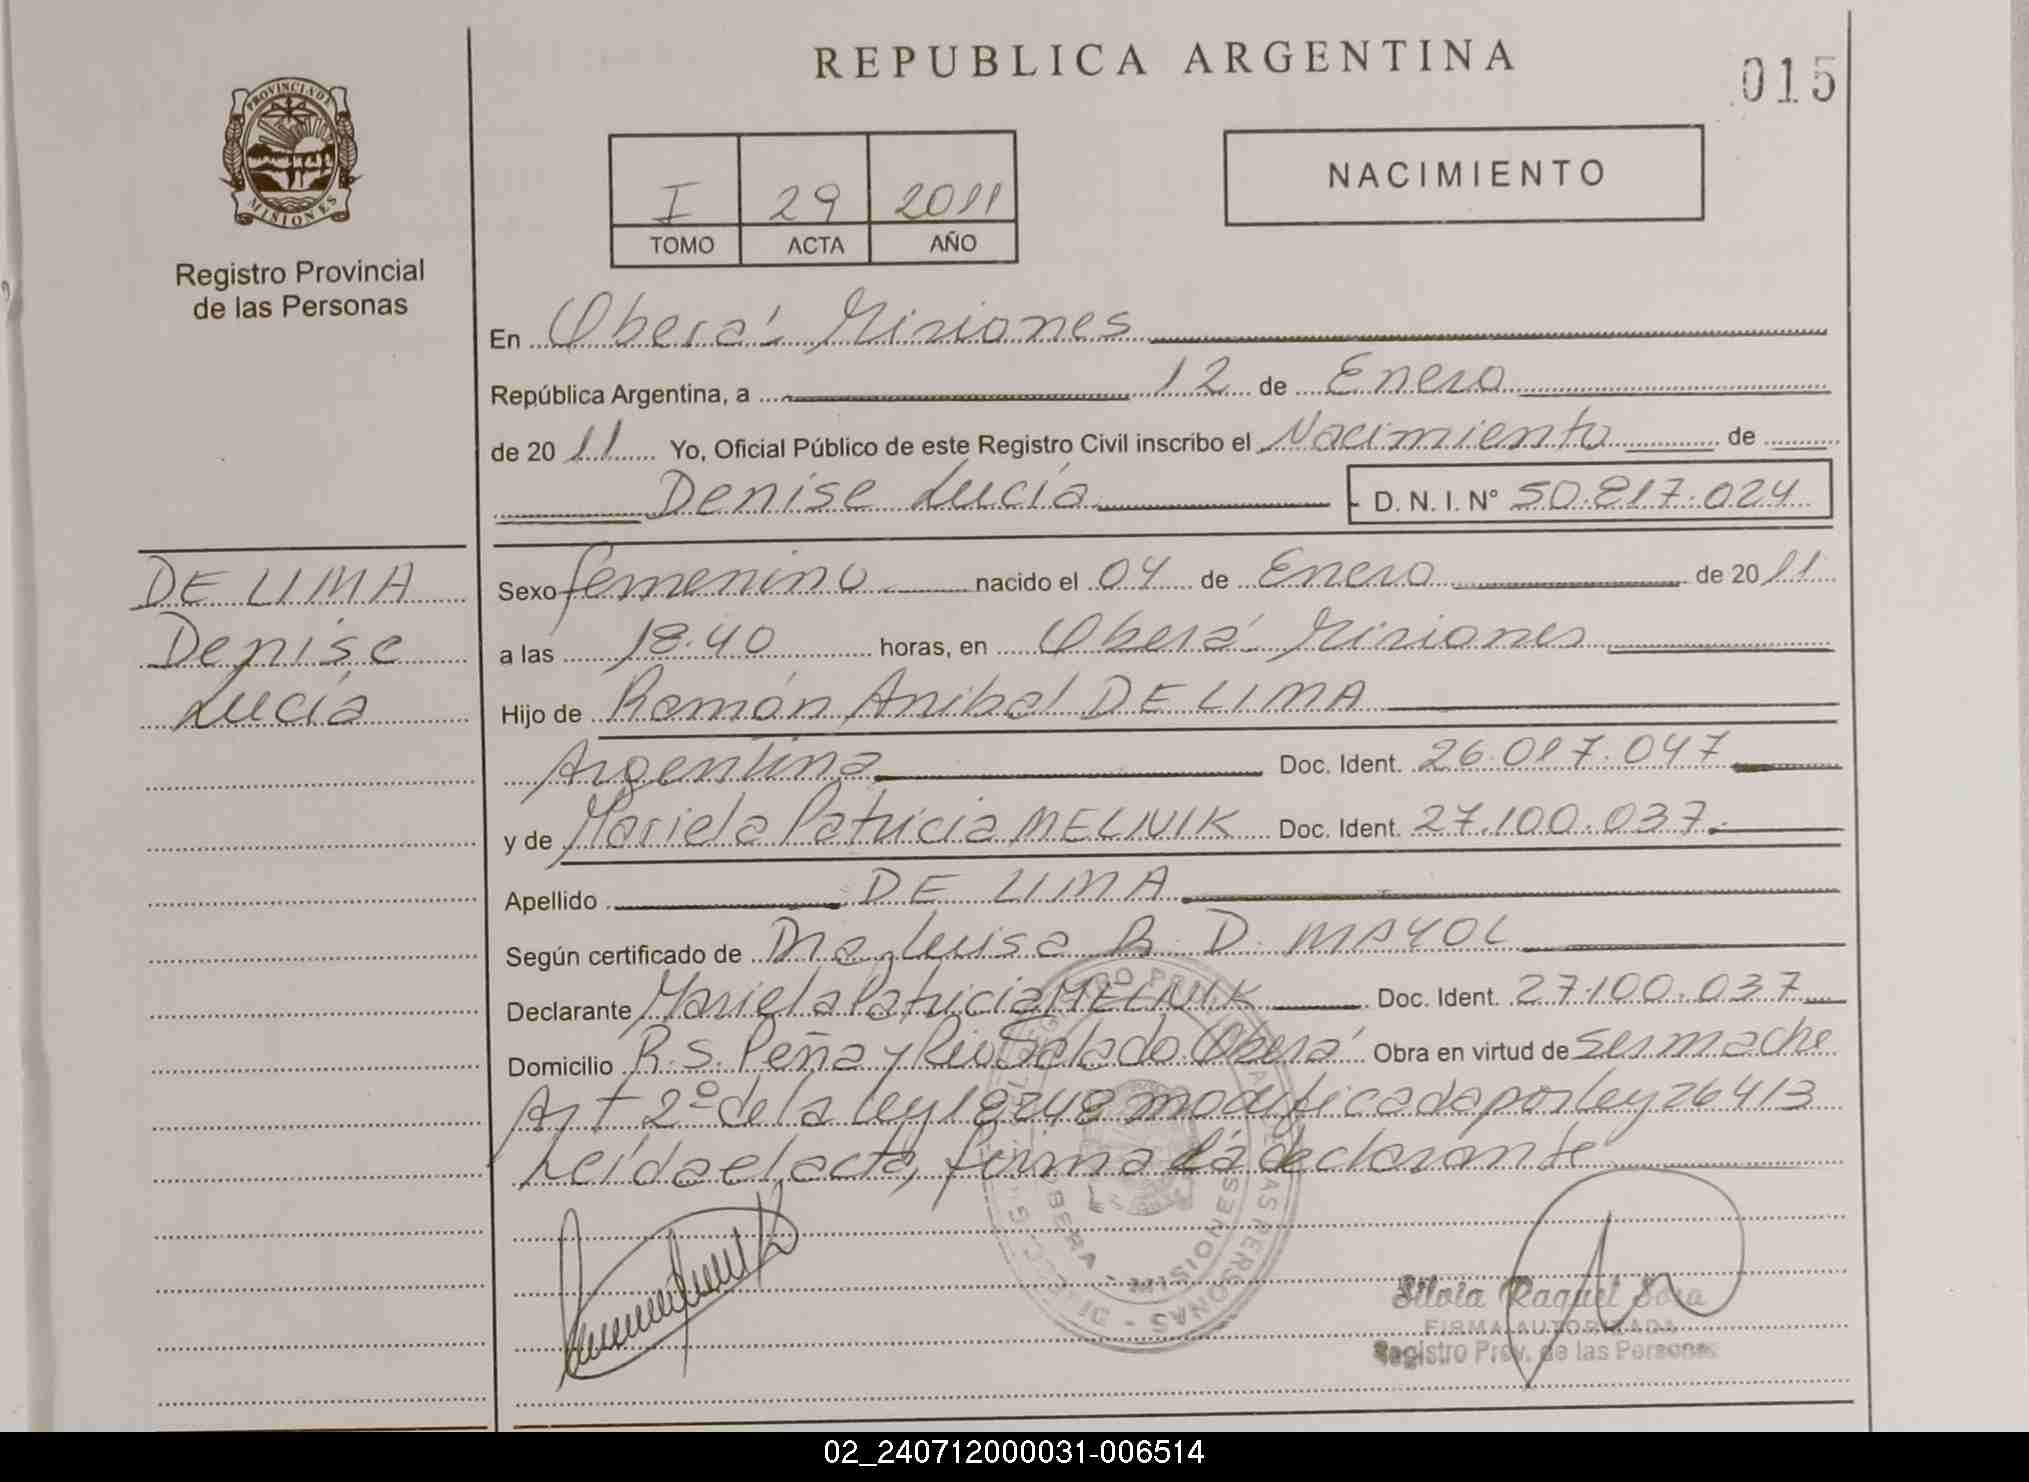 REPUBLICA ARGENTINA
015
PROVINCIA DE
MISIONES
Registro Provincial
de las Personas
I 29 2011
TOMO ACTA AÑO
NACIMIENTO
En Oberá Misiones
República Argentina, a 12 de Enero
de 2011 Yo, Oficial Público de este Registro Civil inscribo el Nacimiento de
Denise Lucía D. N. I. Nº 50.817.024
DE LIMA
Denise
Lucía
Sexo femenino nacido el 04 de Enero de 2011
a las 18.40 horas, en Oberá Misiones
Hijo de Ramón Anibal DE LIMA
Argentina Doc. Ident. 26.017.047
y de Mariela Patricia MELNIK Doc. Ident. 27.100.037.
Apellido DE LIMA
Según certificado de Dra Luisa R. D. MAYOL
Declarante Mariela Patricia MELNIK Doc. Ident. 27.100.037
Domicilio R.S. Peña y Rio Salado Oberá Obra en virtud de
Art 2º de la ley 18248 modificada por ley 26413
Leída el acta, firma la declarante
OBERA - MISIONES
Silvia Raquel Sosa
FIRMA AUTORIZADA
Registro Prov. de las Personas
02_240712000031-006514